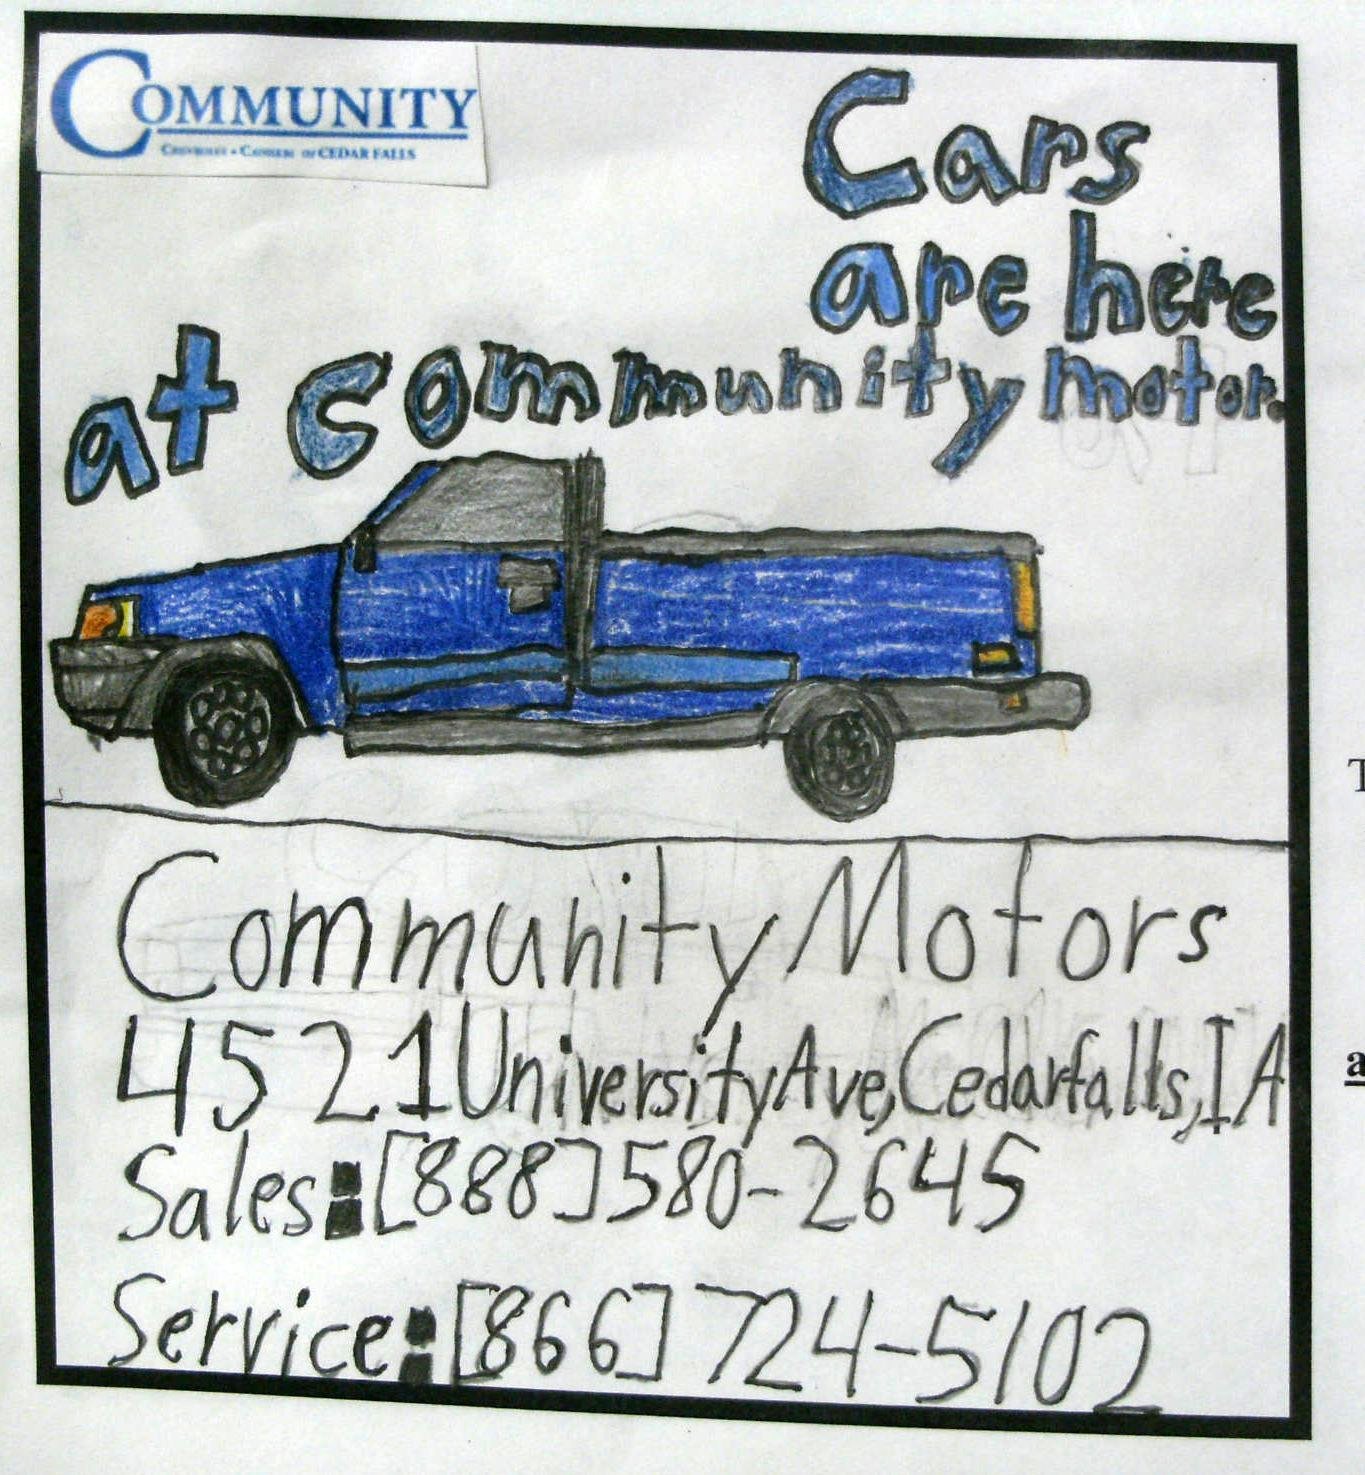 COMMUNITY
CHEVROLET • CADILLAC OF CEDAR FALLS
Cars
are here
at community motor.
Community Motors
4521 University Ave, Cedarfalls, IA
Sales: [888] 580-2645
Service: [866] 724-5102
T
a